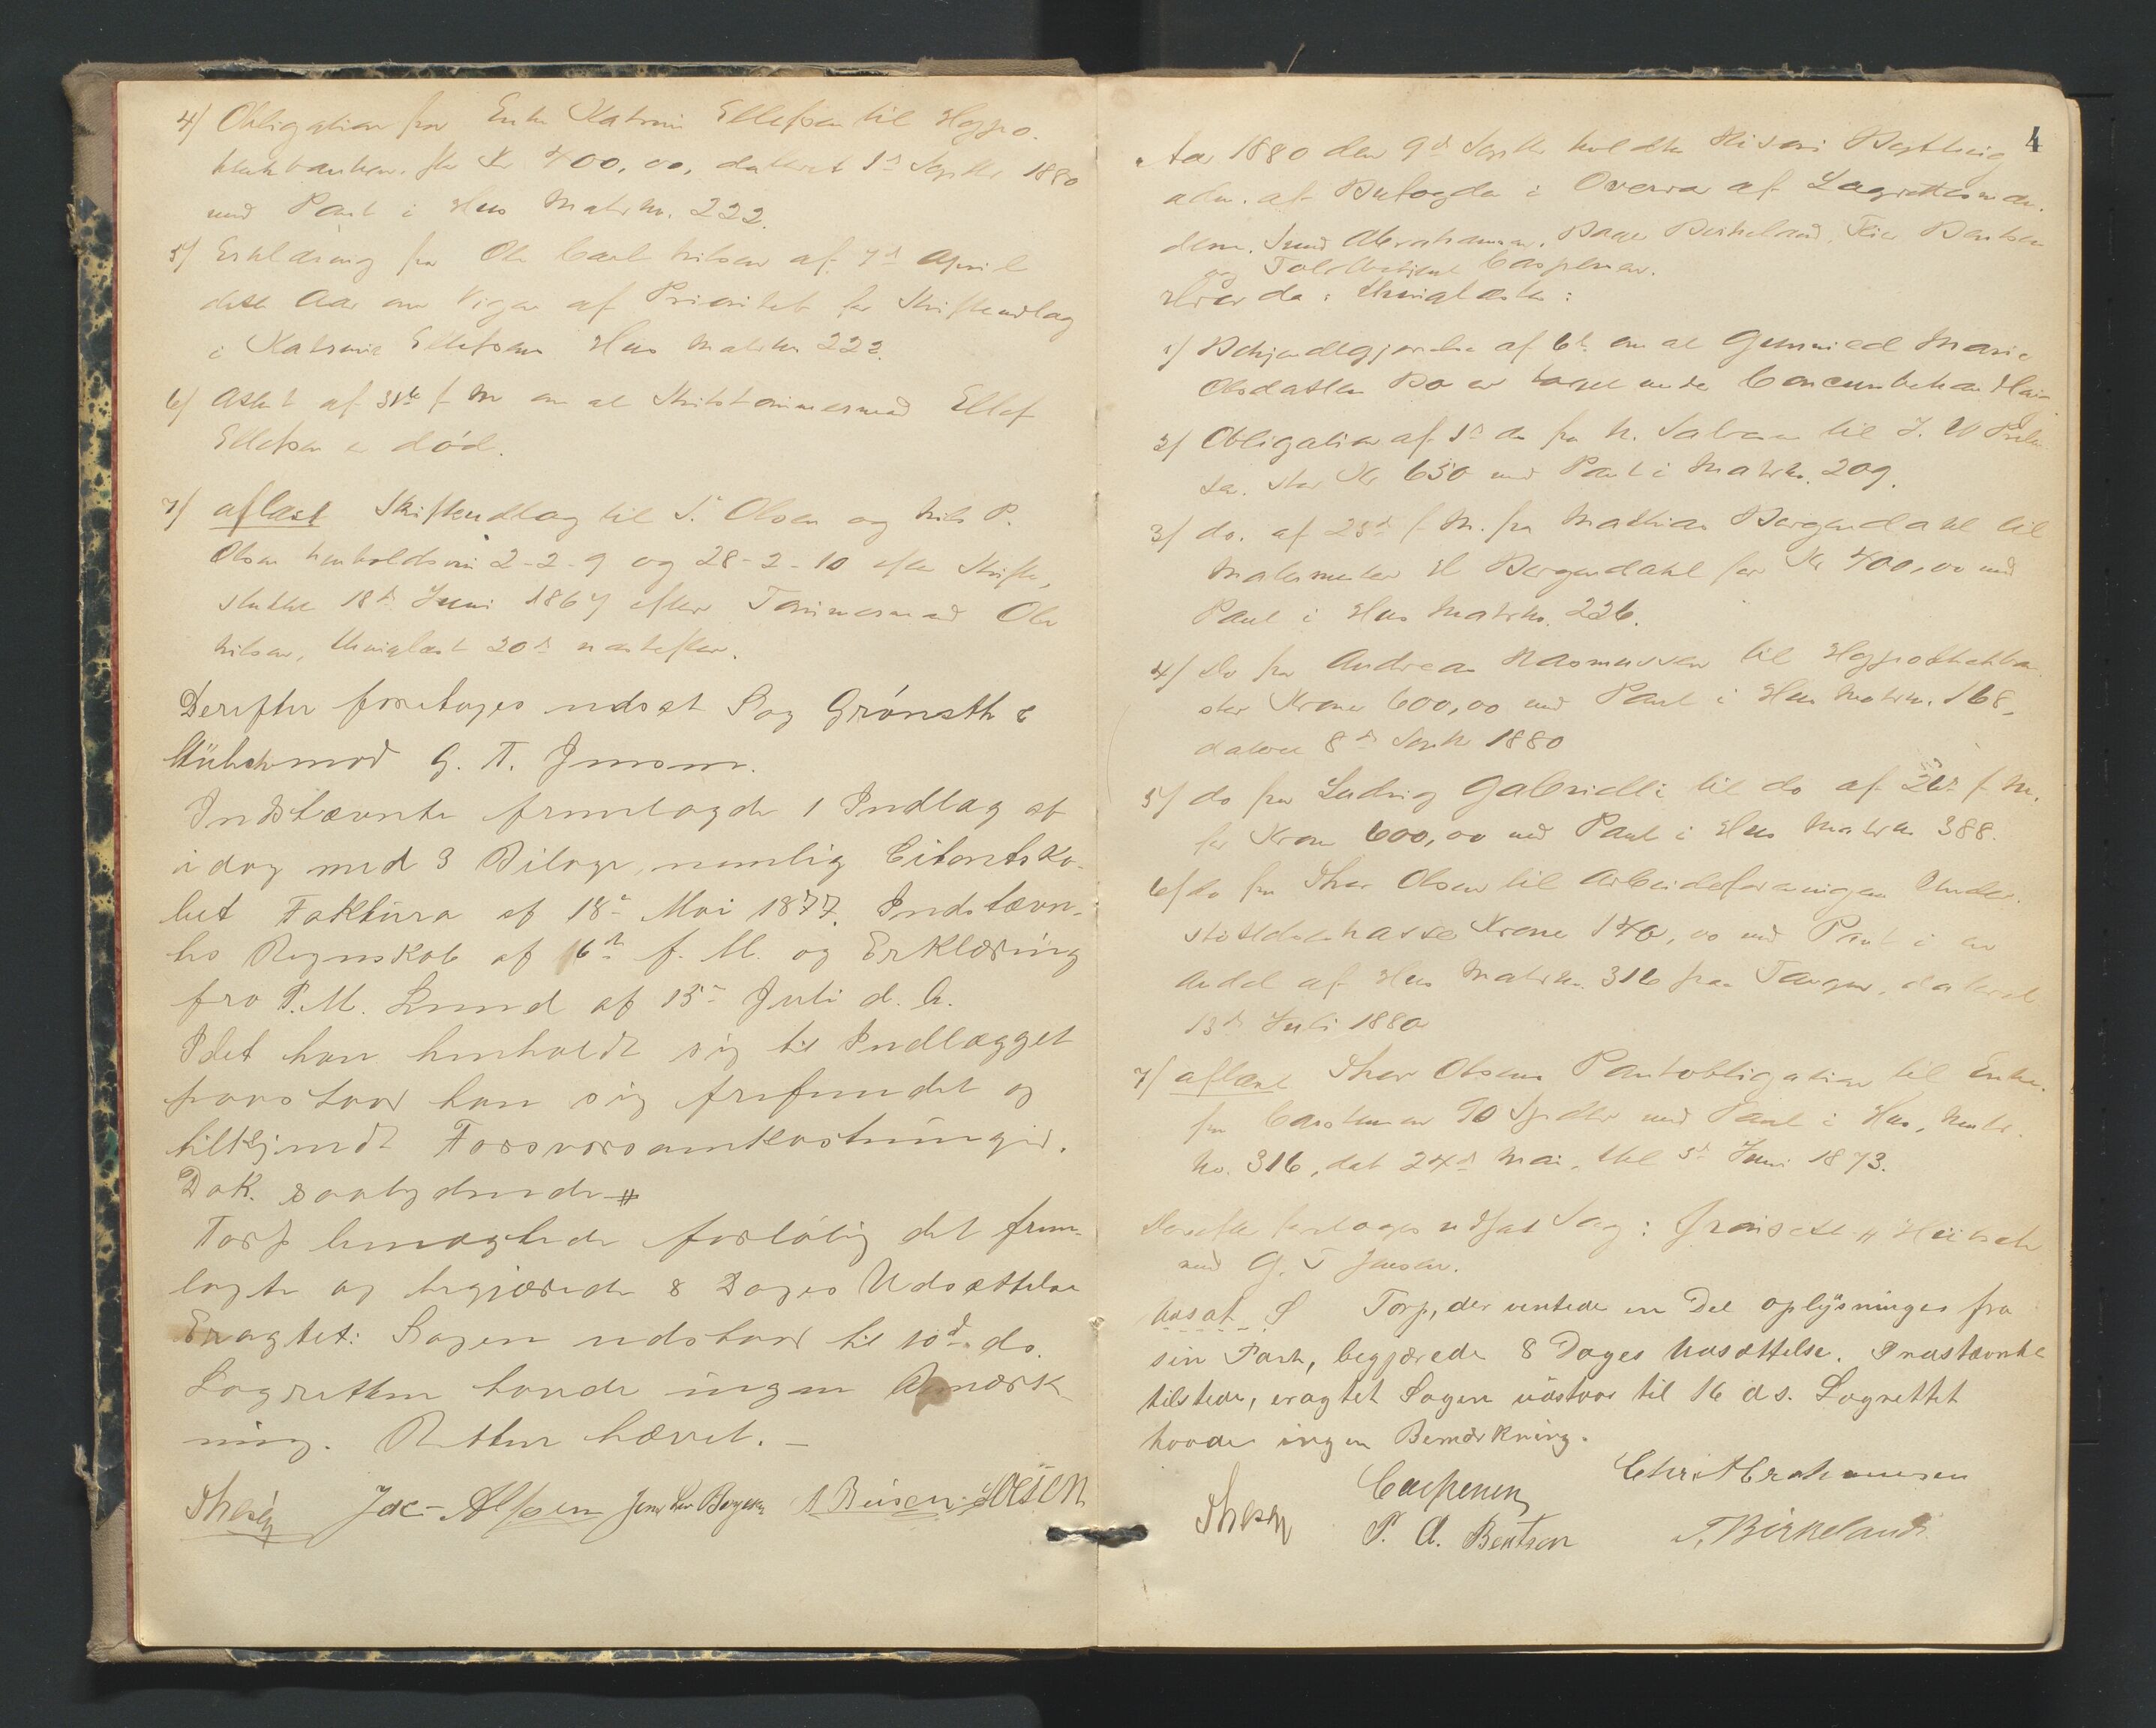 4) Obligation fra Enke Katrine Ellefsen til Hypo-
thekbanken, stor Kr 400,00, dateret 1ste Septbr 1880
med Pant i Hus Matr No. 222.
5) Erklæring fra Ole Carl Nilsen af 7de April
dette Aar om Vigen af Prioritet for Skifteudlag
i Katrine Ellefsens Hus Matr No 222.
6) Attest af 31te f M om at Skibstømmermand Ellef
Ellefsen er död.
7) aflæst Skifteudlag til S. Olsen og Nils P.
Olsen henholdsvis 2-2-9 og 28-2-10 efter Skifte,
sluttet 18de Juni 1867 efter Tømmermand Ole
Nilsen, thinglæst 20de næstefter.
Derefter foretoges udsat Sag Grönseth &
Hübsch mod G. T. Jensen.
Indstævnte fremlagde 1 Indlæg af
idag med 3 Bilage, nemlig Citantska-
bet Faktura af 18de Mai 1877. Indstævn-
tes Regnskab af 6te f. M. og Erklæring
fra P. M. Lund af 13de Juli d. A.
Idet han henholdt sig til Indlægget
paastod han sig frifundet og
tilkjendt Forsvarsomkostninger.
Dok. saalydende #
Torp bemægtede foreløbig det frem-
lagte og begjærede 8 Dages Udsættelse
Eragtet: Sagen udstaar til 10de ds.
Lagretten havde ingen Bemærk-
ning. Retten hævet. -
Jac Alfsen Jens Bergesen Olsen
4
Aar 1880 den 9de Septbr holdtes Risør Bything
adm. af Byfogden i Overvær af Lagrettesmæn-
dene, Abrahamsen, Birkeland, Bentsen
og Toldbetjent Caspersen.
Hvorda: thinglæstes:
1) Bekjendtgjørelse af 6te om at Gunnild Marie
Olsdatters Bo er taget under Concursbehandling
2) Obligation af 1ste ds fra N. Salvesen til J. W
stor Kr 650 med Pant i Matr No. 209.
3) do. af 25de f. M. fra Mathias Bergendahl til
Malermester H Bergendahl for Kr 400,00 med
Pant i Hus Matr No. 226.
4) Do fra Andreas Rasmussen til Hypothekba.
stor Kroner 600,00 med Pant i Hus Matr No. 168,
dateret 8de Septbr 1880
5) do fra Ludvig Gabrielli til do af 26de f. M.
for Kroner 600,00 med Pant i Hus Matr No 388.
6) do fra Thor Olsen til Arbeiderforeningens Under-
støttelseskasse Kroner 140,00 med Pant i en
Andel af Hus Matr No. 316 paa Tangen, dateret
13de Juli 1880
7) aflæst Thor Olsens Pantobligation til Enke-
fru Carstensen 90 Spdlr med Pant i Hus, Matr.
No. 316, dat 24de Mai, thl 5te Juni 1873.
Derefter foretoges udsat Sag: Grønseth & Hübsch
mod G. T Jensen.
Udsat S Torp, der ventede en Del oplysninger fra
sin Part, begjærede 8 Dages Udsættelse. Indstævnte
tilstede, eragtet Sagen udstaar til 16 ds. Lagrettet
havde ingen Bemærkning.
Caspersen Chr Abrahamsen
P. A. Bentsen T. Birkeland